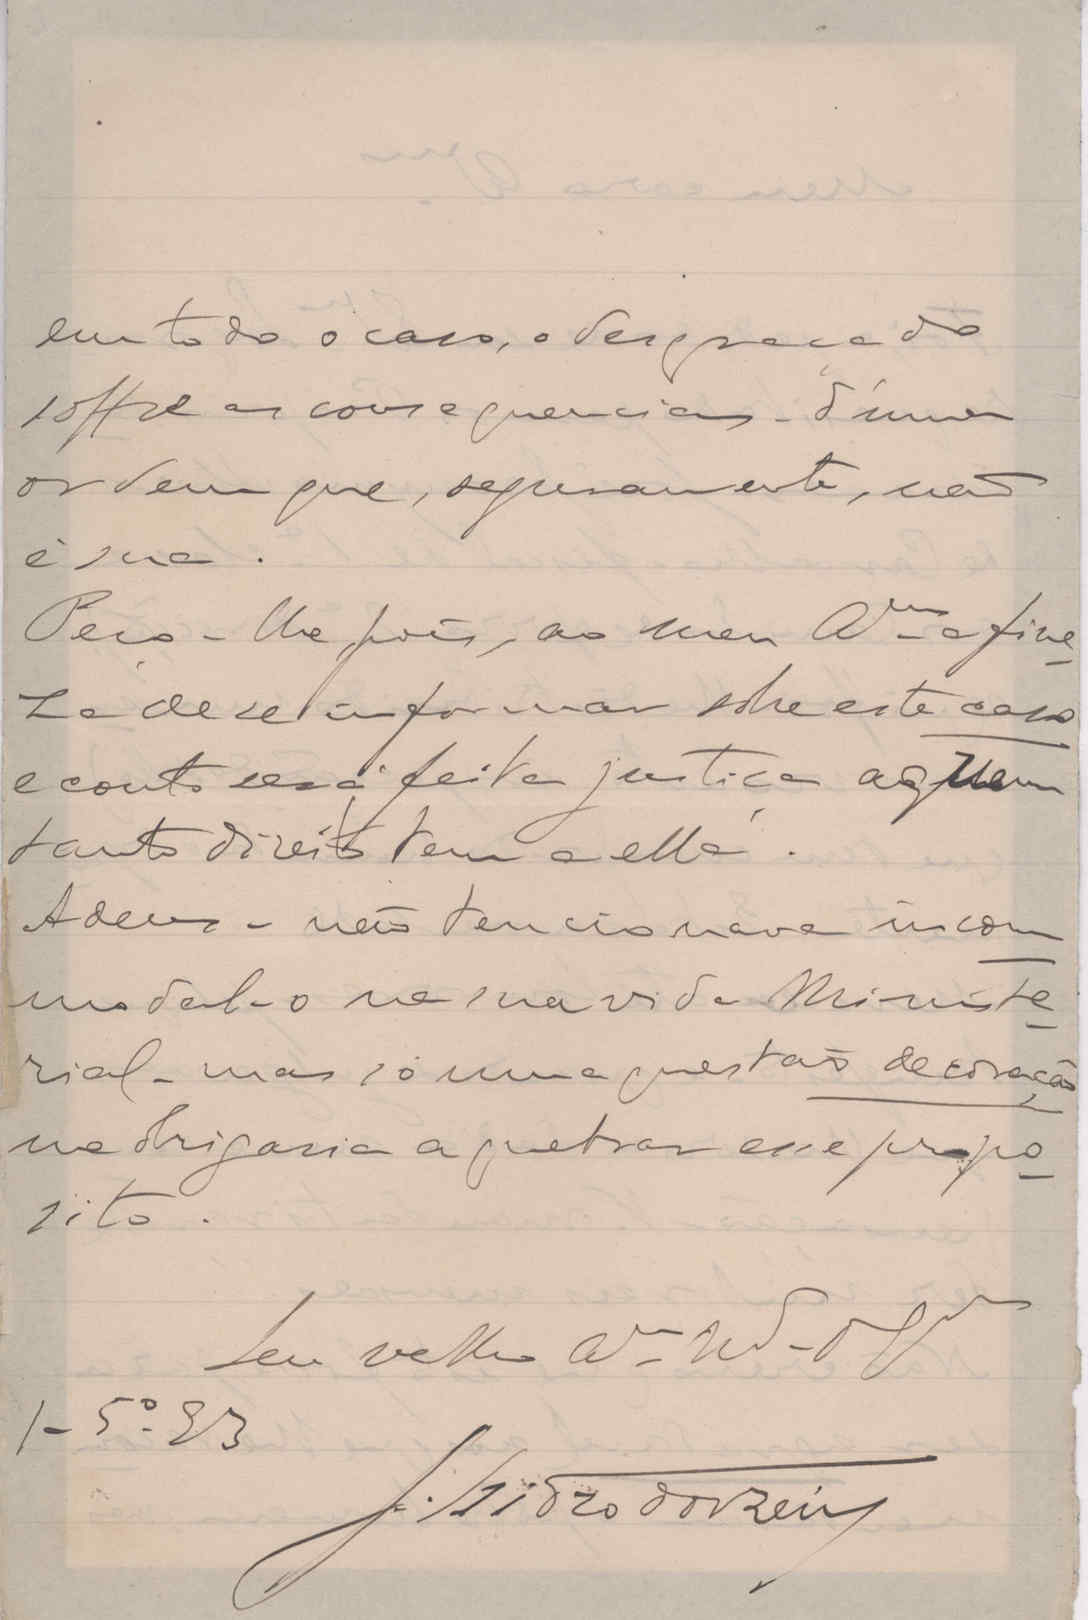 em todo o caso, o desgraçado
soffre as consequencias d'uma
ordem que, seguramente, não
é sua.
Peço-lhe, pois, ao meu Am.º a fine-
za de se informar sobre este caso
e conto será feita justiça a quem
tanto direito tem a ella.
Adeus - não tencionava incom
modal-o na sua vida Ministe-
rial - mas só uma questão de coração
me obrigaria a quebrar esse propo-
sito.
Seu velho Am.º
1-5º-23
J. Isidro dos Reis